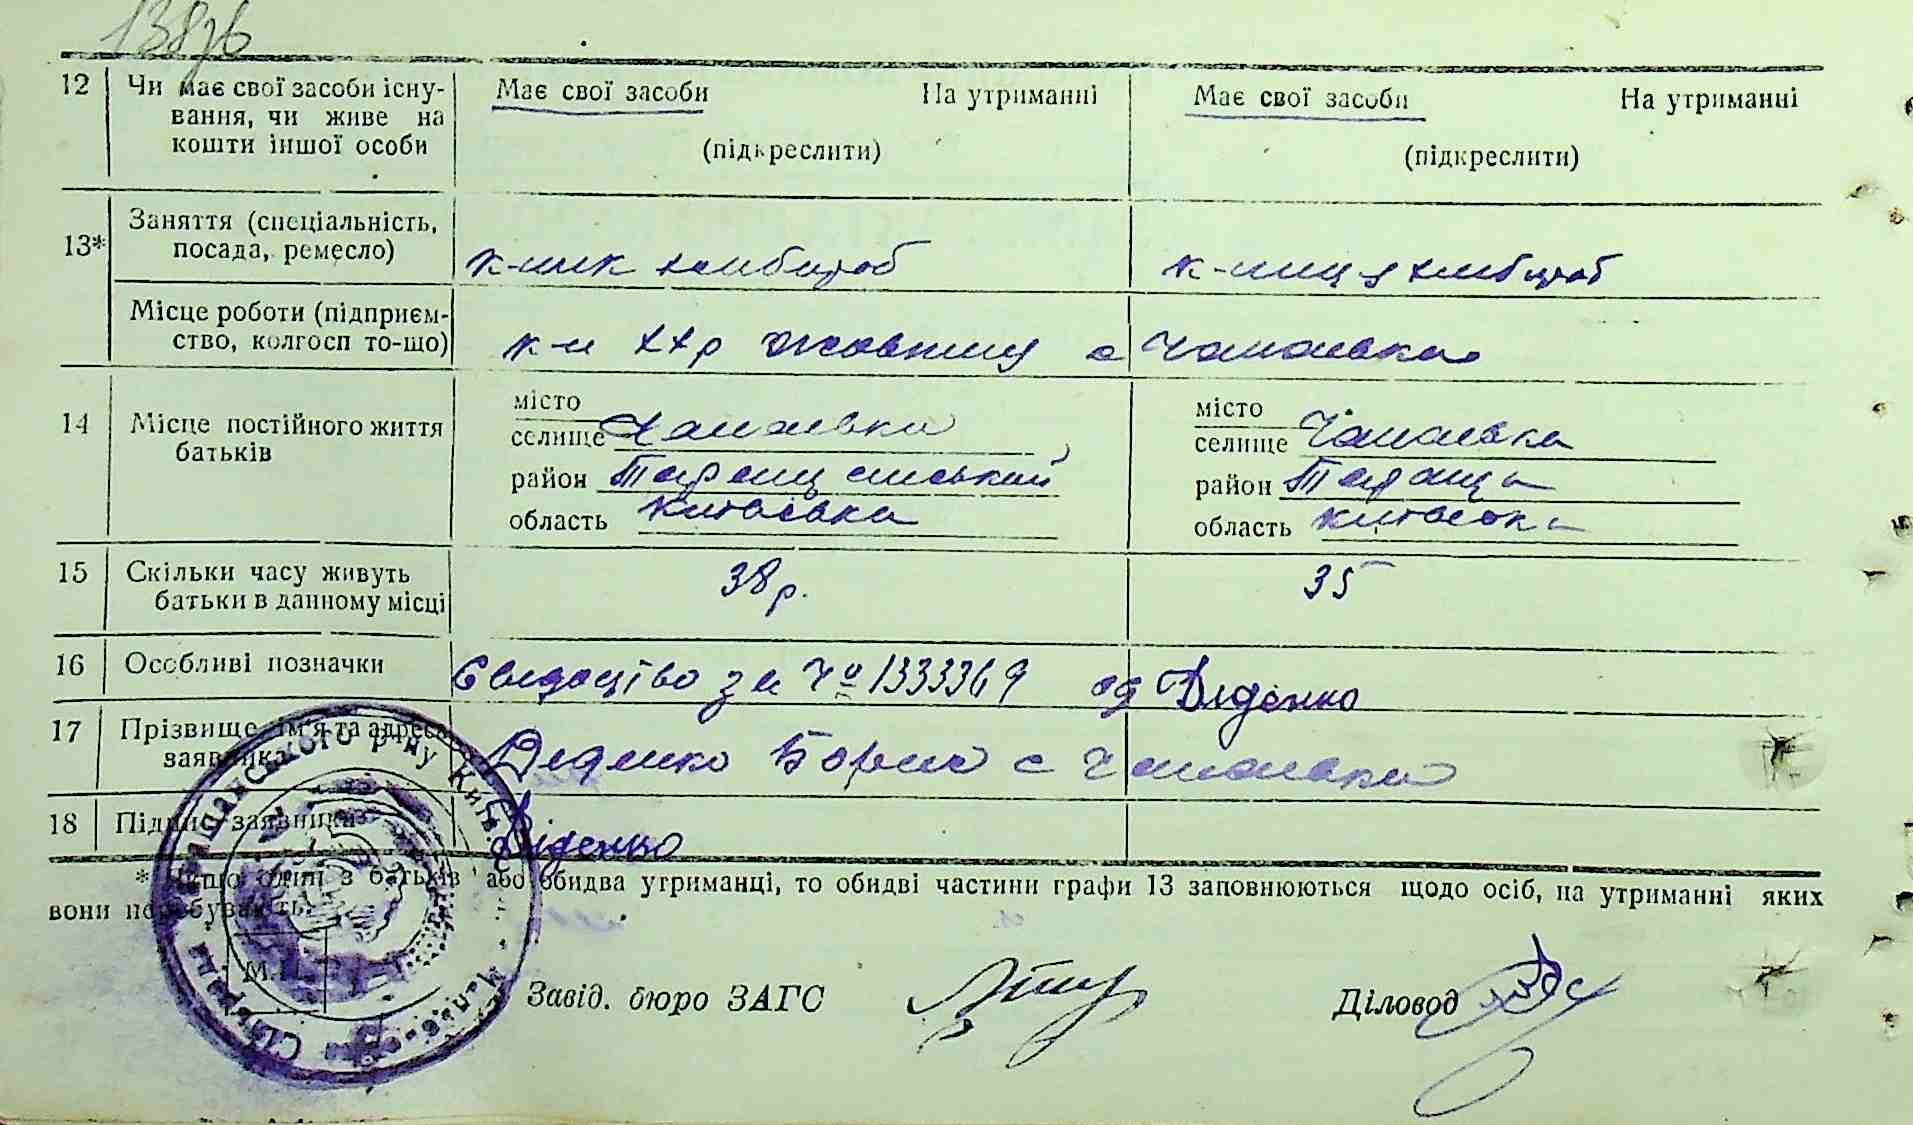 12 Чи має свої засоби існу-
вання, чи живе на
кошти іншої особи
Має свої засоби На утриманні
(підкреслити)
Має свої засоби На утриманні
(підкреслити)
13* Заняття (спеціальність,
посада, ремесло)
к-ник хлібороб
к-ниця хлібороб
Місце роботи (підприєм-
ство, колгосп то-що)
к-п ХХр Жовтня с Чапаєвка
14 Місце постійного життя
батьків
місто
селище Чапаєвка
район Таращанський
область Київська
місто
селище Чапаєвка
район Тараща
область Київська
15 Скільки часу живуть
батьки в данному місці
38 р.
35
16 Особливі позначки
Свидоцтво за № 1333369 од Діденко
17 Прізвище, ім'я та адреса
заявника
Діденко Борис с Чапаєвка
18 Підпис заявника
Діденко
* Якщо один з батьків або обидва утриманці, то обидві частини графи 13 заповнюються щодо осіб, на утриманні яких
вони перебувають.
М.П.
Завід. бюро ЗАГС
Діловод